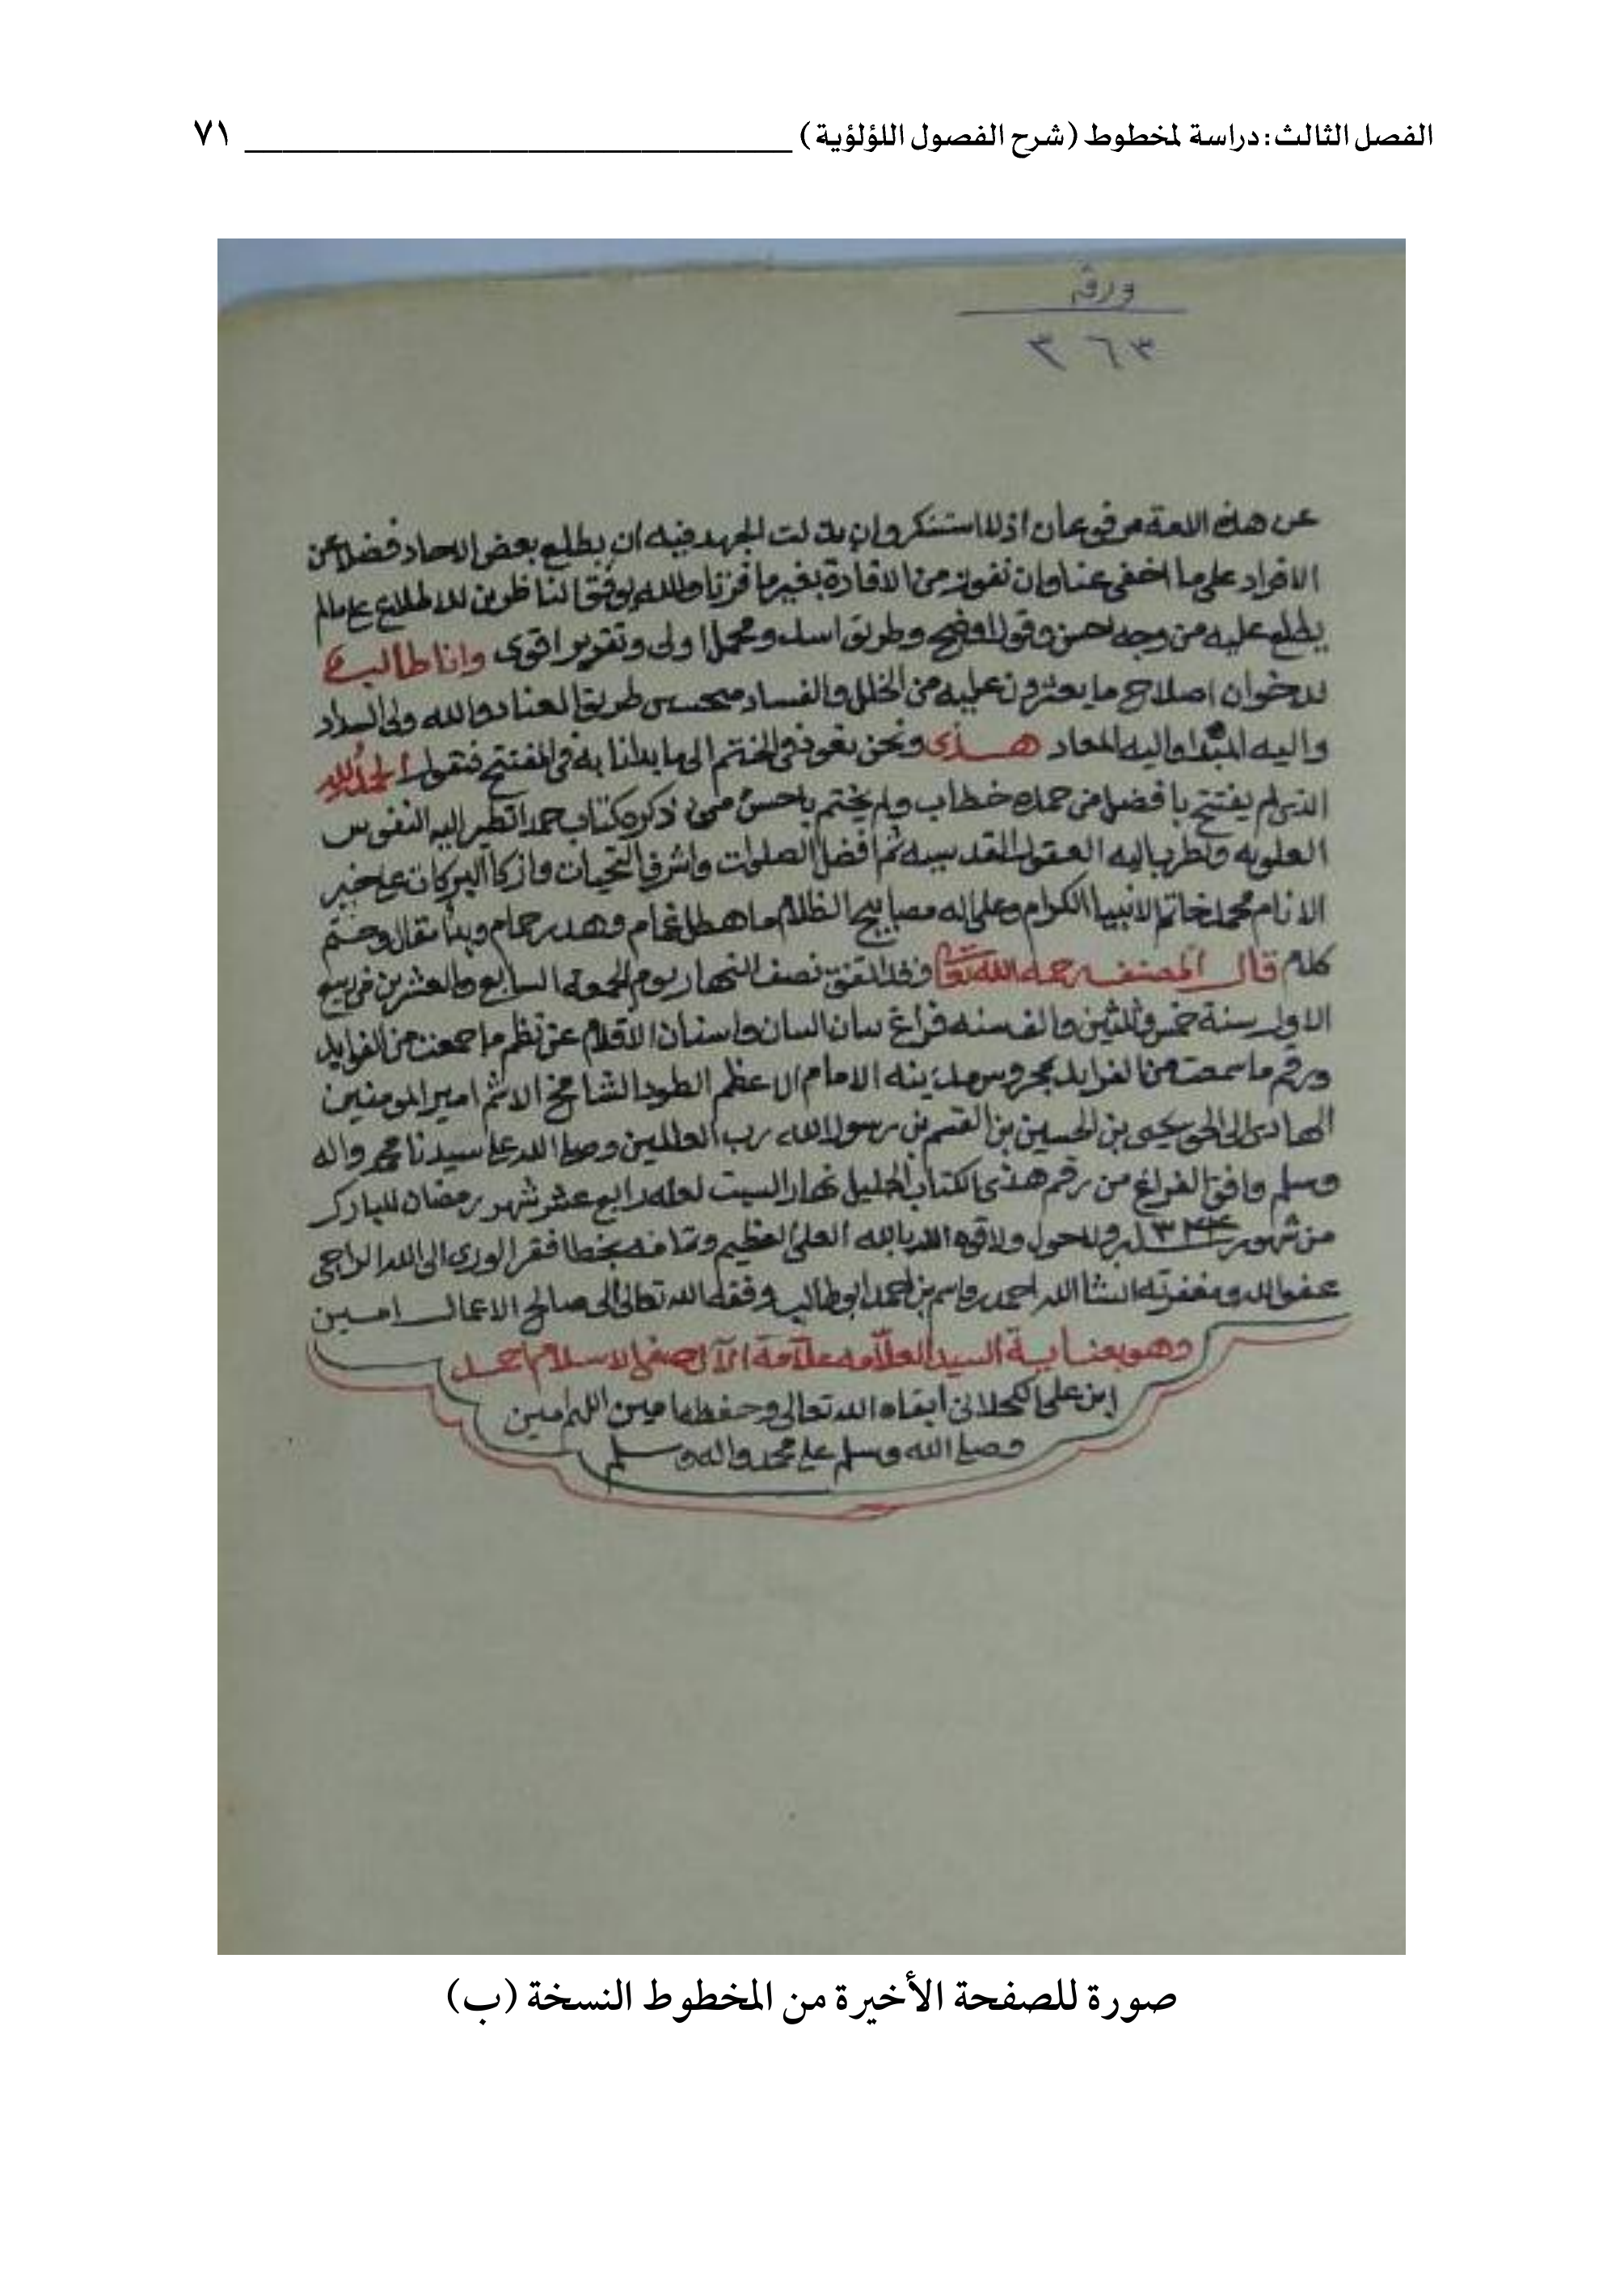 الفصل الثالث: دراسة لمخطوط (شرح الفصول اللؤلؤية) ٧١
ورقه
٣٦٣
عن هذه اللمعة مرفوعان اذ لا استنكر وان بذلت الجهد فيه ان يطلع بعض الاحاد فضلا عن
الافراد على ما اخفى عنا وان تفوز من الافادة بغير ما فزنا والله يوفق الناظرين للاطلاع على مالم
يطلع عليه من وجه احسن وقول اوضح وطريق اسد ومحمل اولى وتقرير اقوى وانا طالب
للاخوان اصلاح ما يعثرون عليه من الخلل والفساد طريق العناد والله ولي السداد
واليه المبتدا واليه المعاد هذى ونحن نعود في المختتم الى ما بدانا به في المفتتح فنقول الحمد لله
الذي لم يفتتح بافضل من حمده خطاب ولم يختتم باحسن من ذكره كتاب حمدا تطير اليه النفوس
العلويه وتطرب اليه العقول القدسيه ثم افضل الصلوات واشرف التحيات وازكا البركات على خير
الانام محمد خاتم الانبيا الكرام وعلى اله مصابيح الظلام ما هطل غمام وهدر حمام وبدا مقال وختم
كلام قال المصنف رحمه الله تعالى وقد اتفق نصف النهار يوم الجمعه السابع والعشرين في ربيع
الاول سنة خمس وثلثين والف سنه فراغ بنان البيان واسنان الاقلام عن نظم ما جمعت من الفوايد
ورقم ما سمعت من الفرايد بمحروس مدينه الامام الاعظم الطود الشامخ الاشم امير المومنين
الهادي الى الحق يحيى بن الحسين بن القسم بن رسول الله رب العالمين وصلى الله على سيدنا محمد واله
وسلم وافق الفراغ من رقم هذى الكتاب الجليل نهار السبت لعله رابع عشر شهر رمضان المبارك
من شهور سنة ١٣٤٤ ولاحول ولاقوه الا بالله العلي العظيم بخط افقر الورى الى الله الراجي
عفو الله ومغفرته انشا الله احمد بن قاسم بن احمد ابوطالب وفقه الله تعالى الى صالح الاعمال امين
وهو بعناية السيد العلامه علامة الآل صفي الاسلام احمد
ابن علي الكحلاني ابقاه الله تعالى وحفظه امين اللهم امين
وصلى الله وسلم على محمد واله وسلم
صورة للصفحة الأخيرة من المخطوط النسخة (ب)